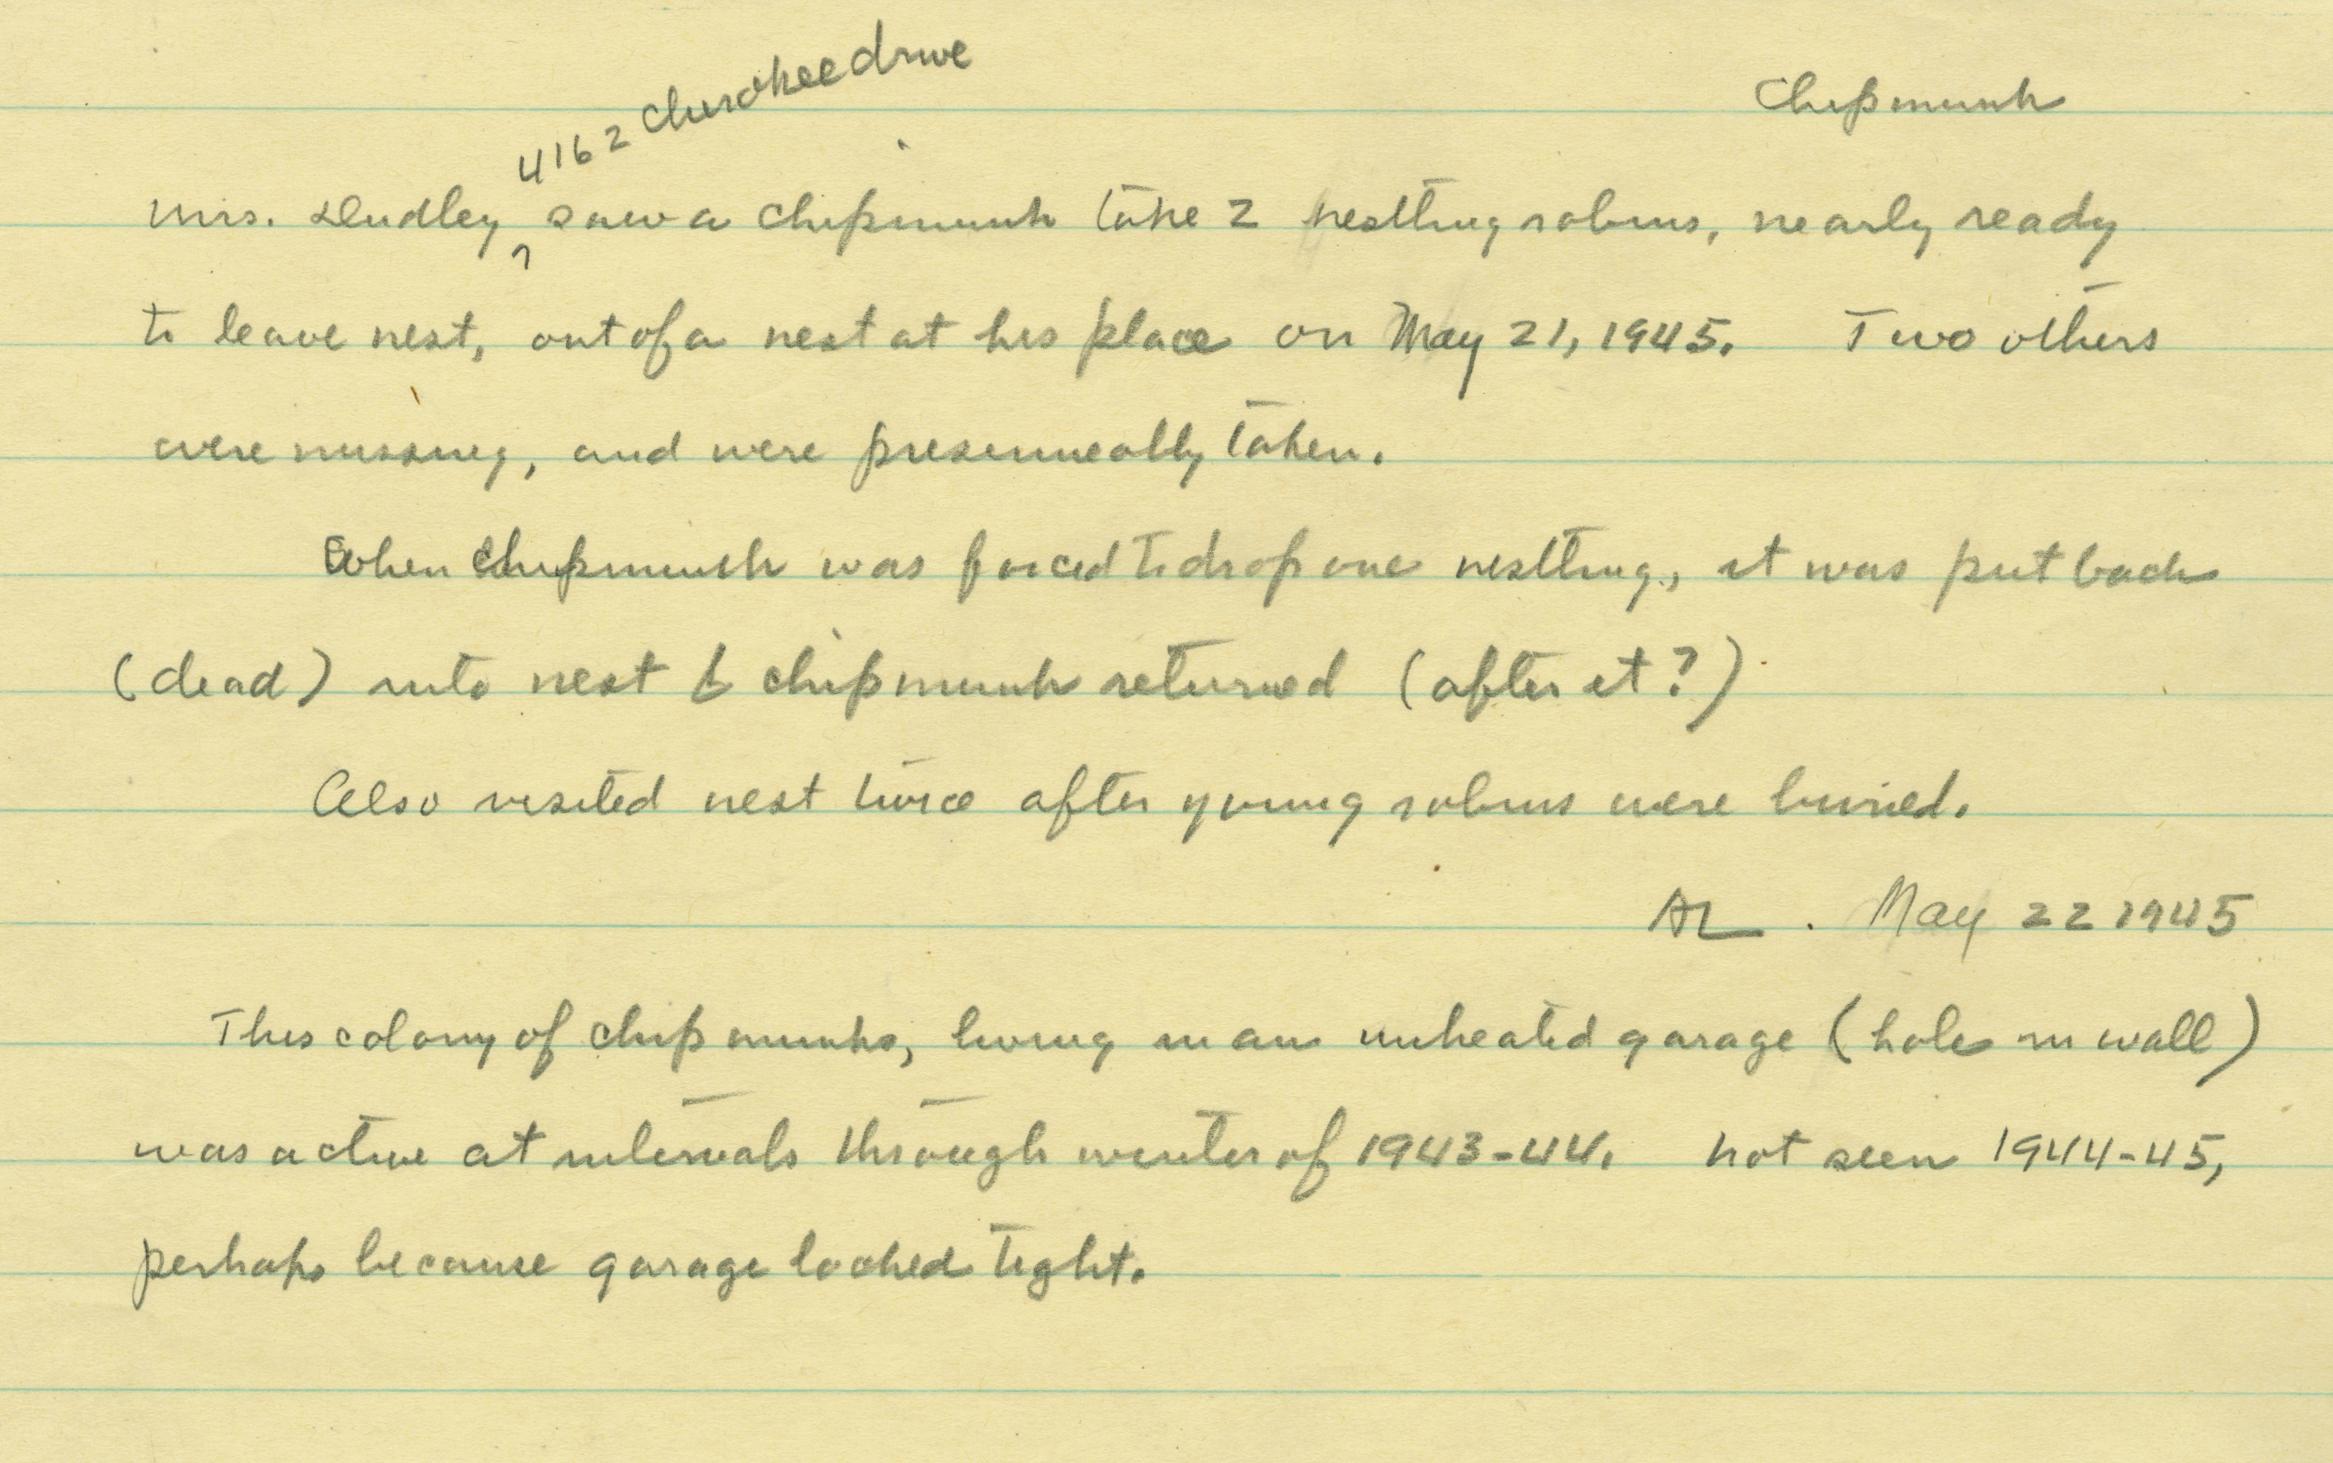 Chipmunk
4162 Cherokee drive
Mrs. Dudley ^ saw a chipmunk take 2 nestling robins, nearly ready
to leave nest, out of a nest at his place on May 21, 1945. Two others
were missing, and were presumeably taken.
When chipmunk was forced to drop one nestling, it was put back
(dead) into nest & chipmunk returned (after it?)
Also visited nest twice after young robins were buried.
AL. May 22 1945
This colony of chipmunks, living in an unheated garage (hole in wall)
was active at intervals through winter of 1943-44. Not seen 1944-45,
perhaps because garage locked tight.